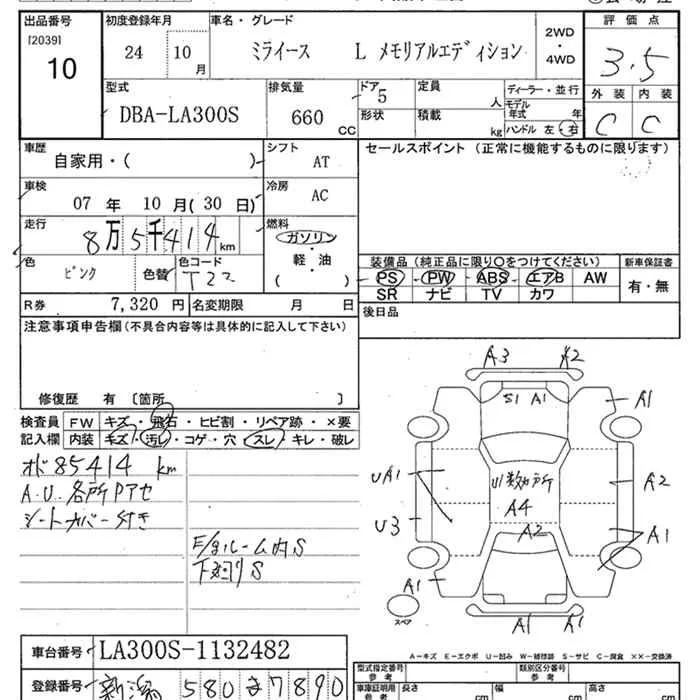 出品番号 初度登録年月 車名・グレード 2WD・4WD 評価点
[2039] 10 24 10月 ミライース L メモリアルエディション 3.5
外装 内装
C C
型式 排気量 ドア 定員 ディーラー・並行
DBA-LA300S 660 CC 5 人 モデル年式 年
形状 積載 kg ハンドル 左・右
車歴 シフト セールスポイント (正常に機能するものに限ります)
自家用・( ) AT
車検 冷房
07 年 10 月(30 日) AC
走行 燃料
8万5千414km ガソリン・軽・油
( )
色 色コード 装備品(純正品に限り○をつけてください) 新車保証書
ピンク 色替 T22 PS PW ABS エアB AW 有・無
SR ナビ TV カワ
R券 7,320 円 名変期限 月 日 後日品
注意事項申告欄(不具合内容等は具体的に記入して下さい)
修復歴 有 〔箇所 〕
検査員 FW キズ・飛石・ヒビ割・リペア跡・×要
記入欄 内装 キズ・汚レ・コゲ・穴・スレ・キレ・破レ
オド85414 km
A.U.各所Pアセ
シートカバー付き
ルーム内S
下廻りS
A3 A2
S1 A1 A1
UA1 A2
A4
U3 A2 A1
A1
スペア A1 A1
A-キズ E-エクボ U-凹み W-補修跡 S-サビ C-腐食 XX-交換済
車台番号 LA300S-1132482
型式指定番号 参考 類別区分番号 参考
登録番号 新潟 580 ま 7890
車庫証明用 参考 長さ cm 幅 cm 高さ cm